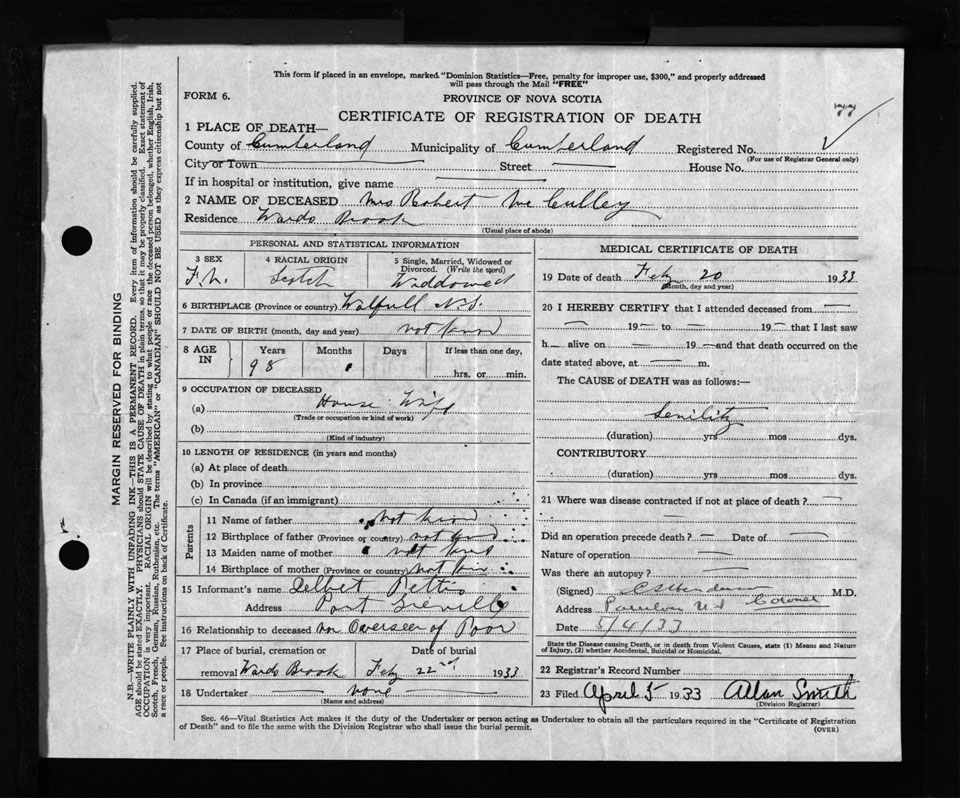 This form if placed in an envelope, marked "Dominion Statistics—Free, penalty for improper use, $300," and properly addressed
will pass through the Mail "FREE"
FORM 6.
PROVINCE OF NOVA SCOTIA
77
CERTIFICATE OF REGISTRATION OF DEATH
1 PLACE OF DEATH—
County of Cumberland Municipality of Cumberland Registered No.
(For use of Registrar General only)
City or Town Street House No.
If in hospital or institution, give name
2 NAME OF DECEASED Mrs Robert Mc Culley
Residence Wards Brook
(Usual place of abode)
PERSONAL AND STATISTICAL INFORMATION
3 SEX 4 RACIAL ORIGIN 5 Single, Married, Widowed or
Divorced. (Write the word)
Scotch Widdowed
6 BIRTHPLACE (Province or country) N.S.
7 DATE OF BIRTH (month, day and year) not known
8 AGE IN Years Months Days If less than one day,
98 hrs. or min.
9 OCCUPATION OF DECEASED
(a) House Wife
(Trade or occupation or kind of work)
(b)
(Kind of industry)
10 LENGTH OF RESIDENCE (in years and months)
(a) At place of death
(b) In province
(c) In Canada (if an immigrant)
Parents
11 Name of father not known
12 Birthplace of father (Province or country) not known
13 Maiden name of mother not known
14 Birthplace of mother (Province or country) not
15 Informant's name Delbert Pettis
Address Port Greville
16 Relationship to deceased Overseer of Poor
17 Place of burial, cremation or Date of burial
removal Wards Brook Feb 22nd 1933
18 Undertaker none
(Name and address)
MEDICAL CERTIFICATE OF DEATH
19 Date of death Feb 20 1933
(Month, day and year)
20 I HEREBY CERTIFY that I attended deceased from
— 19— to — 19— that I last saw
h— alive on — 19— and that death occurred on the
date stated above, at — m.
The CAUSE of DEATH was as follows:—
Senility
(duration) yrs mos dys.
CONTRIBUTORY
(duration) yrs mos dys.
21 Where was disease contracted if not at place of death? —
—
Did an operation precede death? — Date of —
Nature of operation —
Was there an autopsy? —
(Signed) M.D.
Address Parrsboro N.S Coroner
Date 5/4/33
State the Disease causing Death, or in death from Violent Causes, state (1) Means and Nature
of Injury, (2) whether Accidental, Suicidal or Homicidal.
22 Registrar's Record Number
23 Filed April 5 1933 Allan Smith
(Division Registrar)
Sec. 46—Vital Statistics Act makes it the duty of the Undertaker or person acting as Undertaker to obtain all the particulars required in the "Certificate of Registration
of Death" and to file the same with the Division Registrar who shall issue the burial permit.
(OVER)
MARGIN RESERVED FOR BINDING
N.B.—WRITE PLAINLY WITH UNFADING INK—THIS IS A PERMANENT RECORD. Every item of information should be carefully supplied.
AGE should be stated EXACTLY. PHYSICIANS should STATE CAUSE OF DEATH in plain terms, so that it may be properly classified. Exact statement of
OCCUPATION is very important. RACIAL ORIGIN will be described by stating to what people or race the deceased person belonged, whether English, Irish,
Scotch, French, German, Russian, Ruthenian, etc. The terms "AMERICAN" or "CANADIAN" SHOULD NOT BE USED as they express citizenship but not
a race or people. See instructions on back of Certificate.